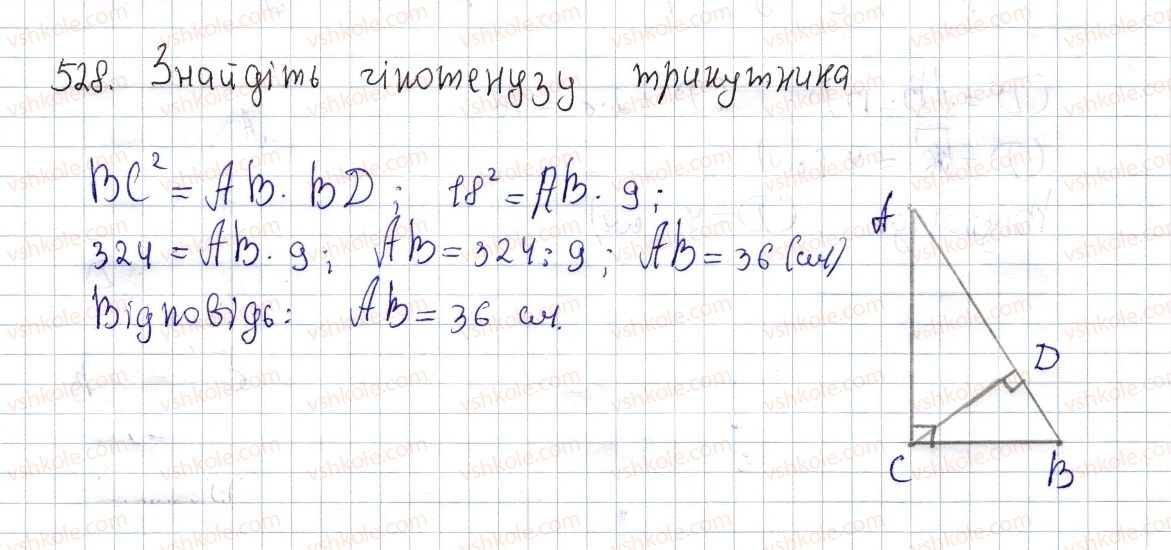 528. Знайдіть гіпотенузу трикутника
BC² = AB · BD; 18² = AB · 9;
324 = AB · 9; AB = 324 : 9; AB = 36 (см)
Відповідь: AB = 36 см.
A
D
C B
vshkole.com